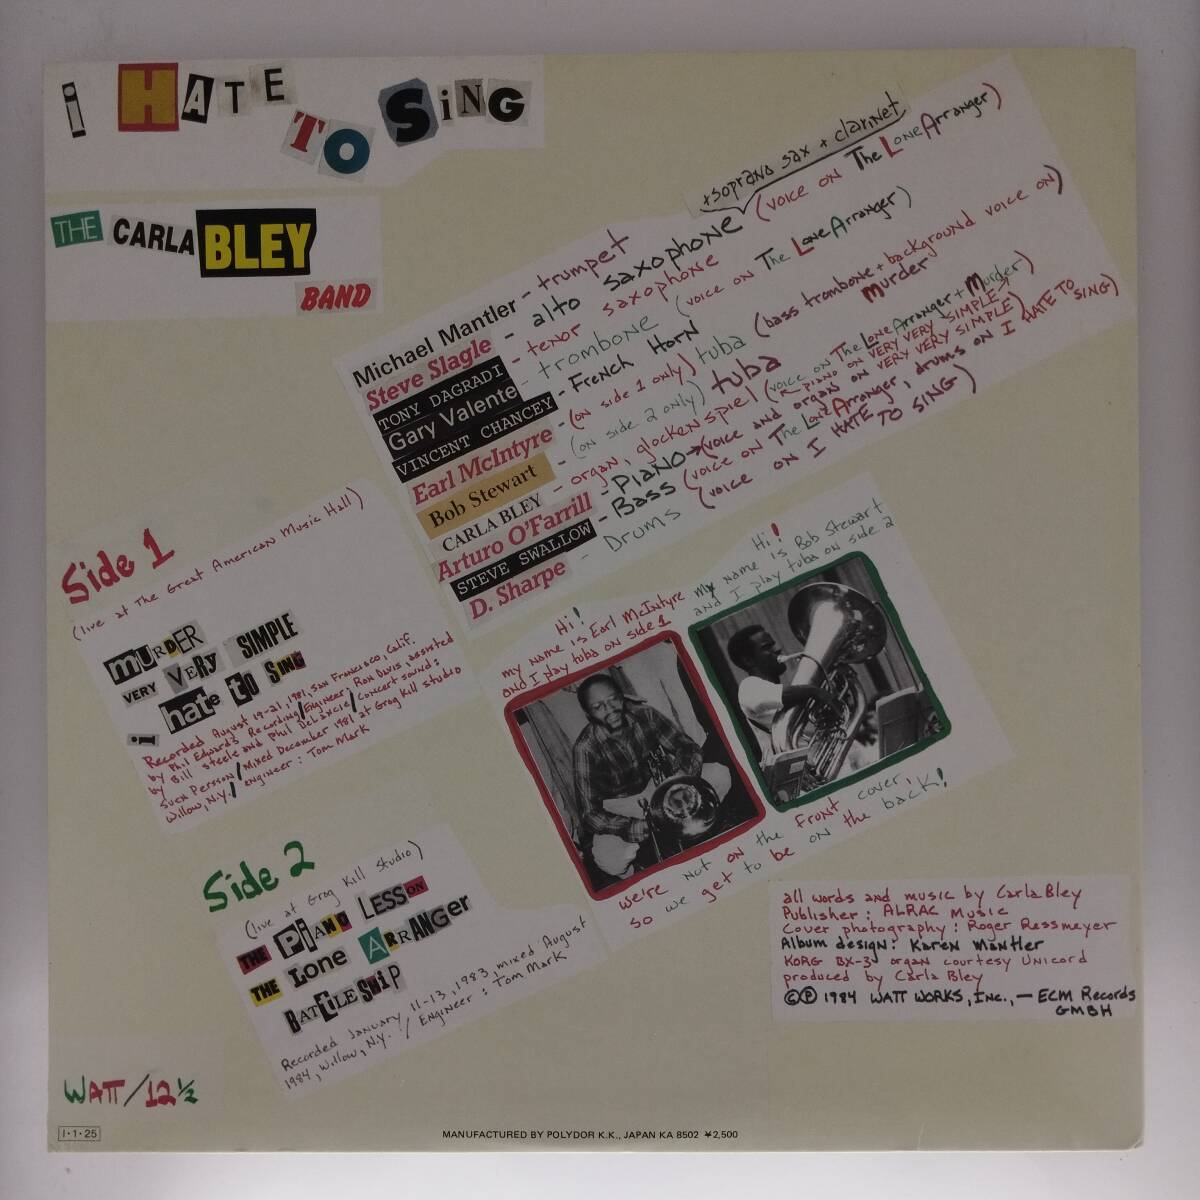 i HATE TO SiNG
THE CARLA BLEY
BAND
+ soprano sax + clarinet
Michael Mantler - trumpet
Steve Slagle - alto saxophone (voice on The Lone Arranger)
TONY DAGRADI - tenor saxophone
Gary Valente - trombone (voice on The Lone Arranger)
VINCENT CHANCEY - French Horn
Earl McIntyre - (on side 1 only) tuba (bass trombone + background voice on Murder)
Bob Stewart - (on side 2 only) tuba
CARLA BLEY - organ, glockenspiel (voice on The Lone Arranger + Murder)
Arturo O'Farrill - PIANO → (voice and organ on VERY VERY SIMPLE)
STEVE SWALLOW - Bass (voice on The Lone Arranger, drums on I HATE TO SING)
D. Sharpe - Drums (voice on I HATE TO SING)
Side 1
(live at The Great American Music Hall)
mURDER
VERY VERY SIMPLE
i hate to SING
Recorded August 19-21, 1981, San Francisco, Calif.
by Phil Edwards Recording/Engineer: Ron Davis, assisted
by Bill Steele and Phil DeLancie/Concert sound:
Sven Persson/Mixed December 1981 at Grog Kill Studio
Willow, N.Y./Engineer: Tom Mark
Hi!
my name is Earl McIntyre
and I play tuba on side 1
Hi!
my name is Bob Stewart
and I play tuba on side 2
we're not on the front cover,
so we get to be on the back!
Side 2
(live at Grog Kill Studio)
THE PiANO LESSON
THE LOne ARRANGer
BATtLESHiP
Recorded January 11-13, 1983, mixed August
1984, Willow, N.Y. / Engineer: Tom Mark
all words and music by Carla Bley
Publisher: ALRAC Music
Cover photography: Roger Ressmeyer
Album design: Karen Mantler
KORG BX-3 organ courtesy Unicord
produced by Carla Bley
©℗ 1984 WATT WORKS, Inc., — ECM Records
GMBH
WATT/12 ½
I·1·25
MANUFACTURED BY POLYDOR K.K., JAPAN KA 8502 ¥2,500